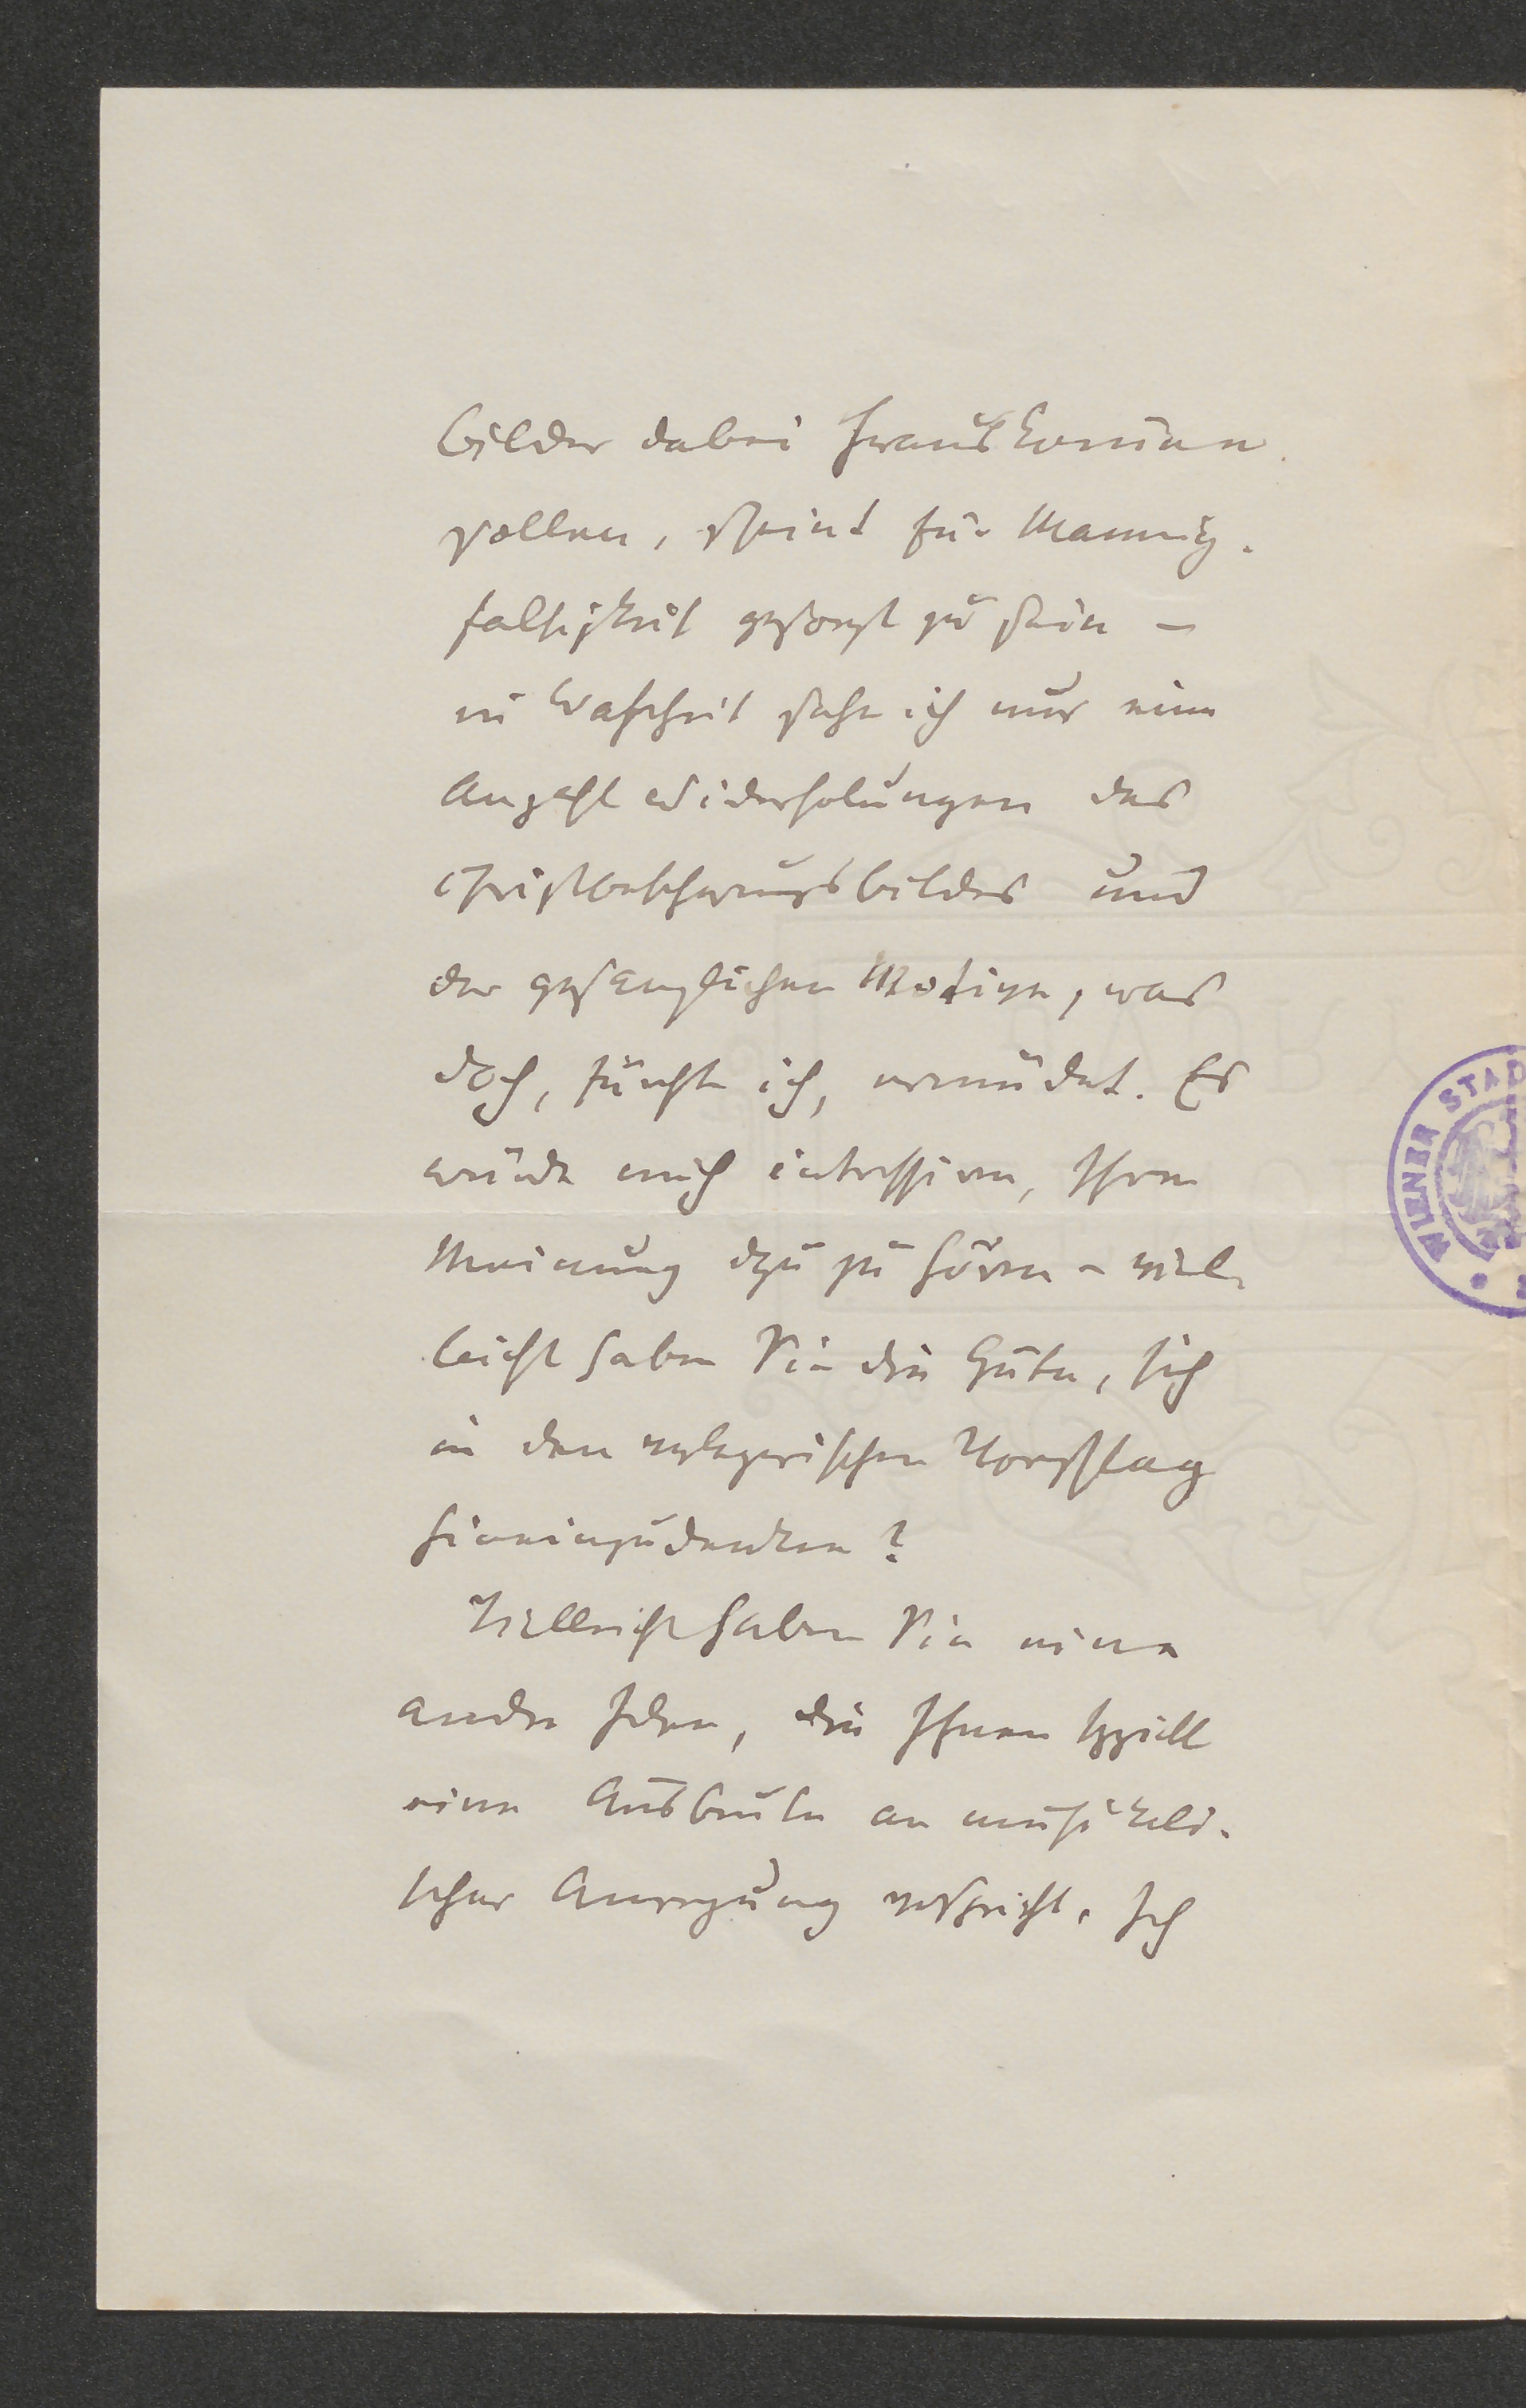 bilder dabei herauskommen
sollen, scheint für Mannig-
faltigkeit gesorgt zu sein –
in Wahrheit sehe ich nur eine
Anzahl Widerholungen des
Christbescherungsbildes und
der gesanglichen Motive, was
doch, fürchte ich, ermüdet. Es
würde mich interessieren, Ihre
Meinung dazu zu hören – viel-
leicht haben Sie die Güte, sich
in den verlegerischen Vorschlag
hineinzudenken?
Vielleicht haben Sie eine
andre Idee, die Ihnen speziell
eine Ausbeute an musikali-
scher Anregung verspricht. Ich
WIENER STAD